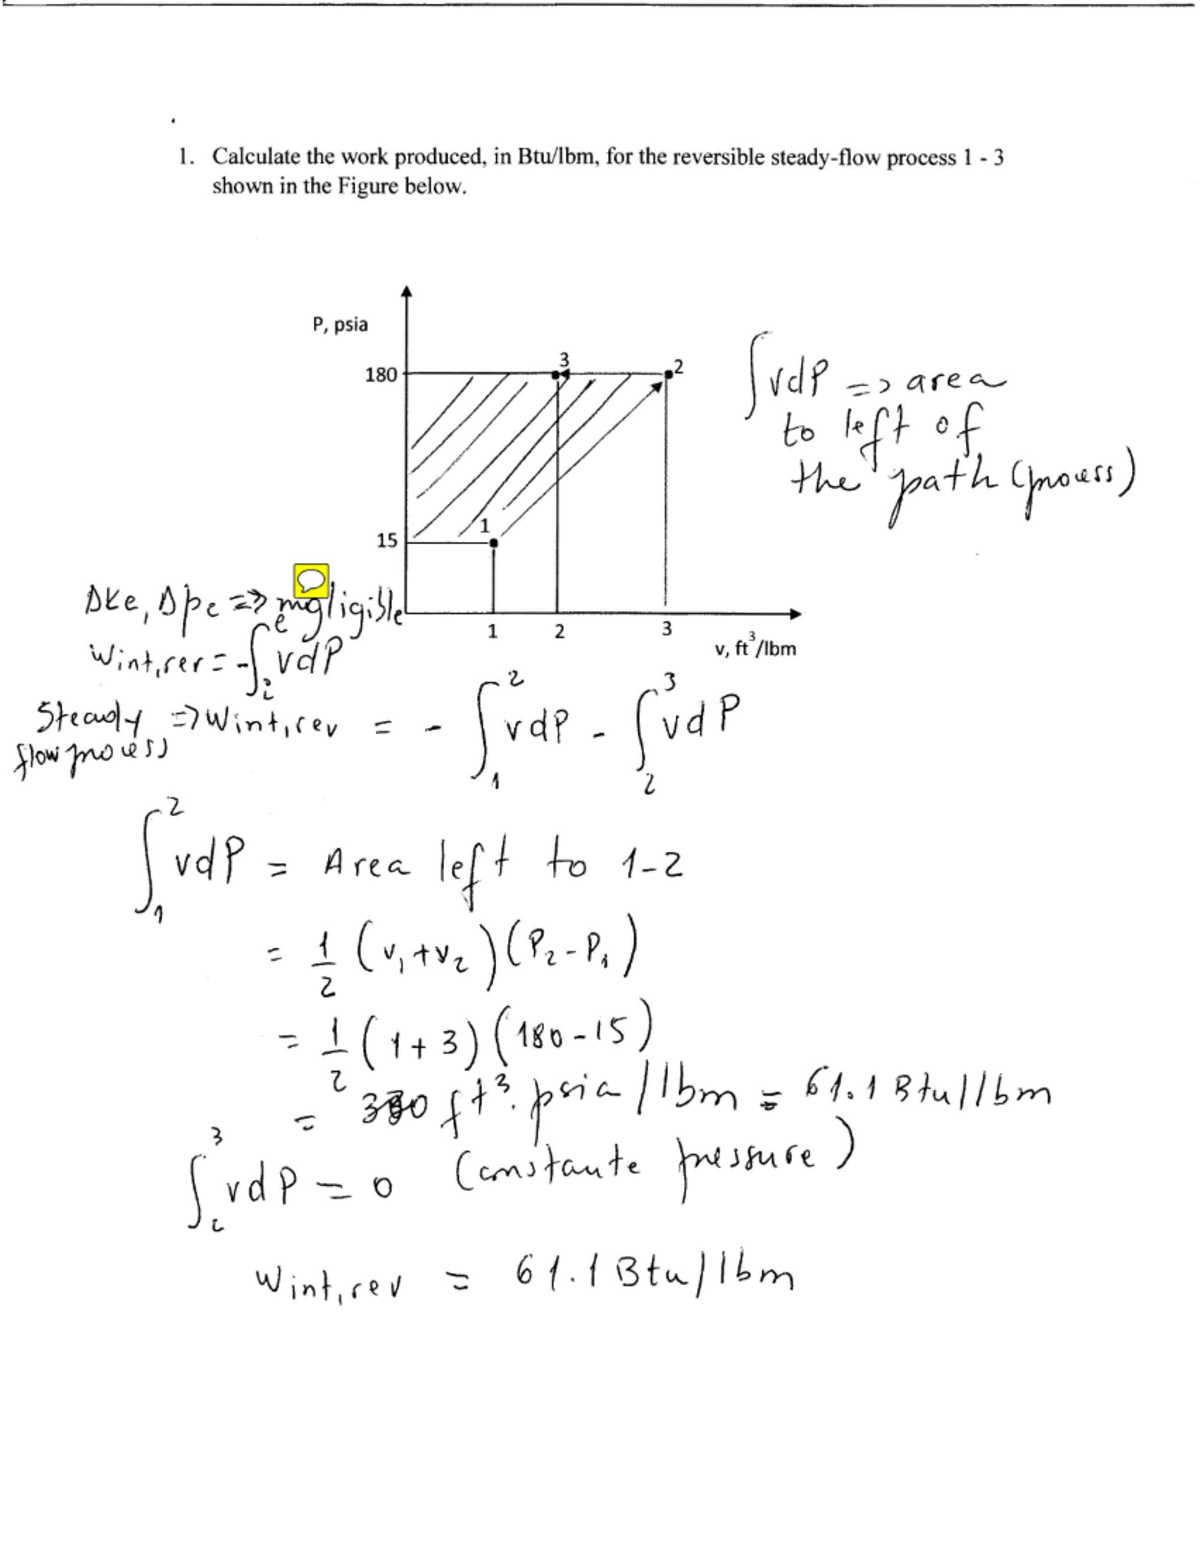 1. Calculate the work produced, in Btu/lbm, for the reversible steady-flow process 1 - 3
shown in the Figure below.
P, psia
180
3
2
15
1
1
2
3
v, ft³/lbm
∫vdP => area
to left of
the path (process)
Δke, Δpe => negligible
Wint,rev = -∫ vdP
Steady flow process => Wint,rev = - ∫₁² vdP - ∫₂³ vdP
∫₁² vdP = Area left to 1-2
= 1/2 (v₁+v₂)(P₂-P₁)
= 1/2 (1+3)(180-15)
= 330 ft³.psia/lbm = 61.1 Btu/lbm
∫₂³ vdP = 0 (constante pressure)
Wint,rev = 61.1 Btu/lbm